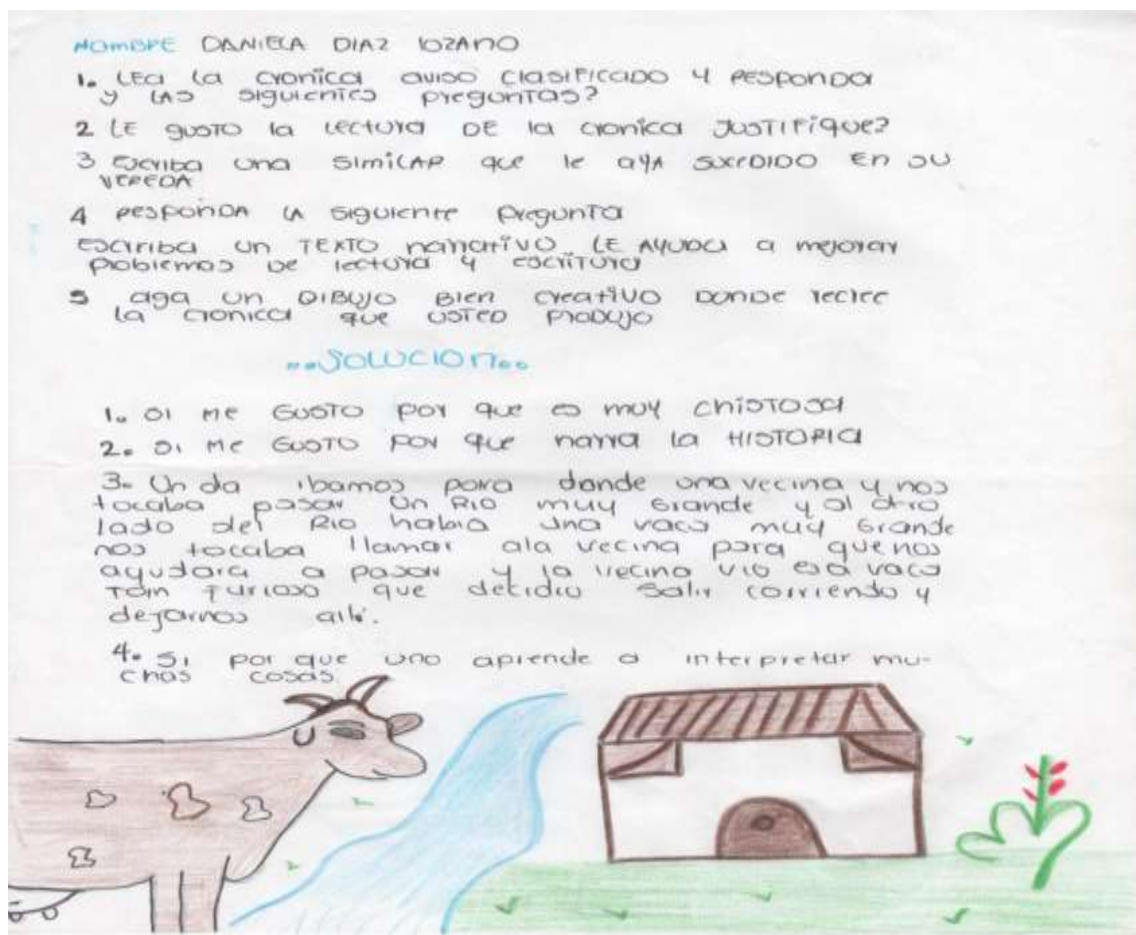 NOMBRE DANIELA DIAZ LOZANO
1. LEA LA CRONICA AVISO CLASIFICADO Y RESPONDA
Y LAS SIGUIENTES PREGUNTAS?
2 LE GUSTO la LECTURA DE la CRONICA JUSTIFIQUE?
3 ESCRIBA UNA SIMILAR que le AYA SUCEDIDO EN SU
VEREDA
4 RESPONDA LA SIGUIENTE PREGUNTA
ESCRIRIBA UN TEXTO NARRATIVO LE AYUDA a mejorar
PROBLEMAS DE lectura y ESCRITURA
5 aga un DIBUJO BIEN CREATIVO DONDE recree
LA CRONICA que USTED PRODUJO
..SOLUCION..
1. SI ME GUSTO por que es muy CHISTOSA
2. SI ME GUSTO por que narra LA HISTORIA
3. Un da ibamos para donde una vecina y nos
tocaba pasar un Rio muy Grande y al otro
lado del Rio habia una vaca muy Grande
nos tocaba llamar ala vecina para que nos
ayudara a pasar y la vecina vio esa vaca
tan furiosa que desidio salir corriendo y
dejarnos alli.
4. SI por que uno aprende a interpretar mu-
chas cosas